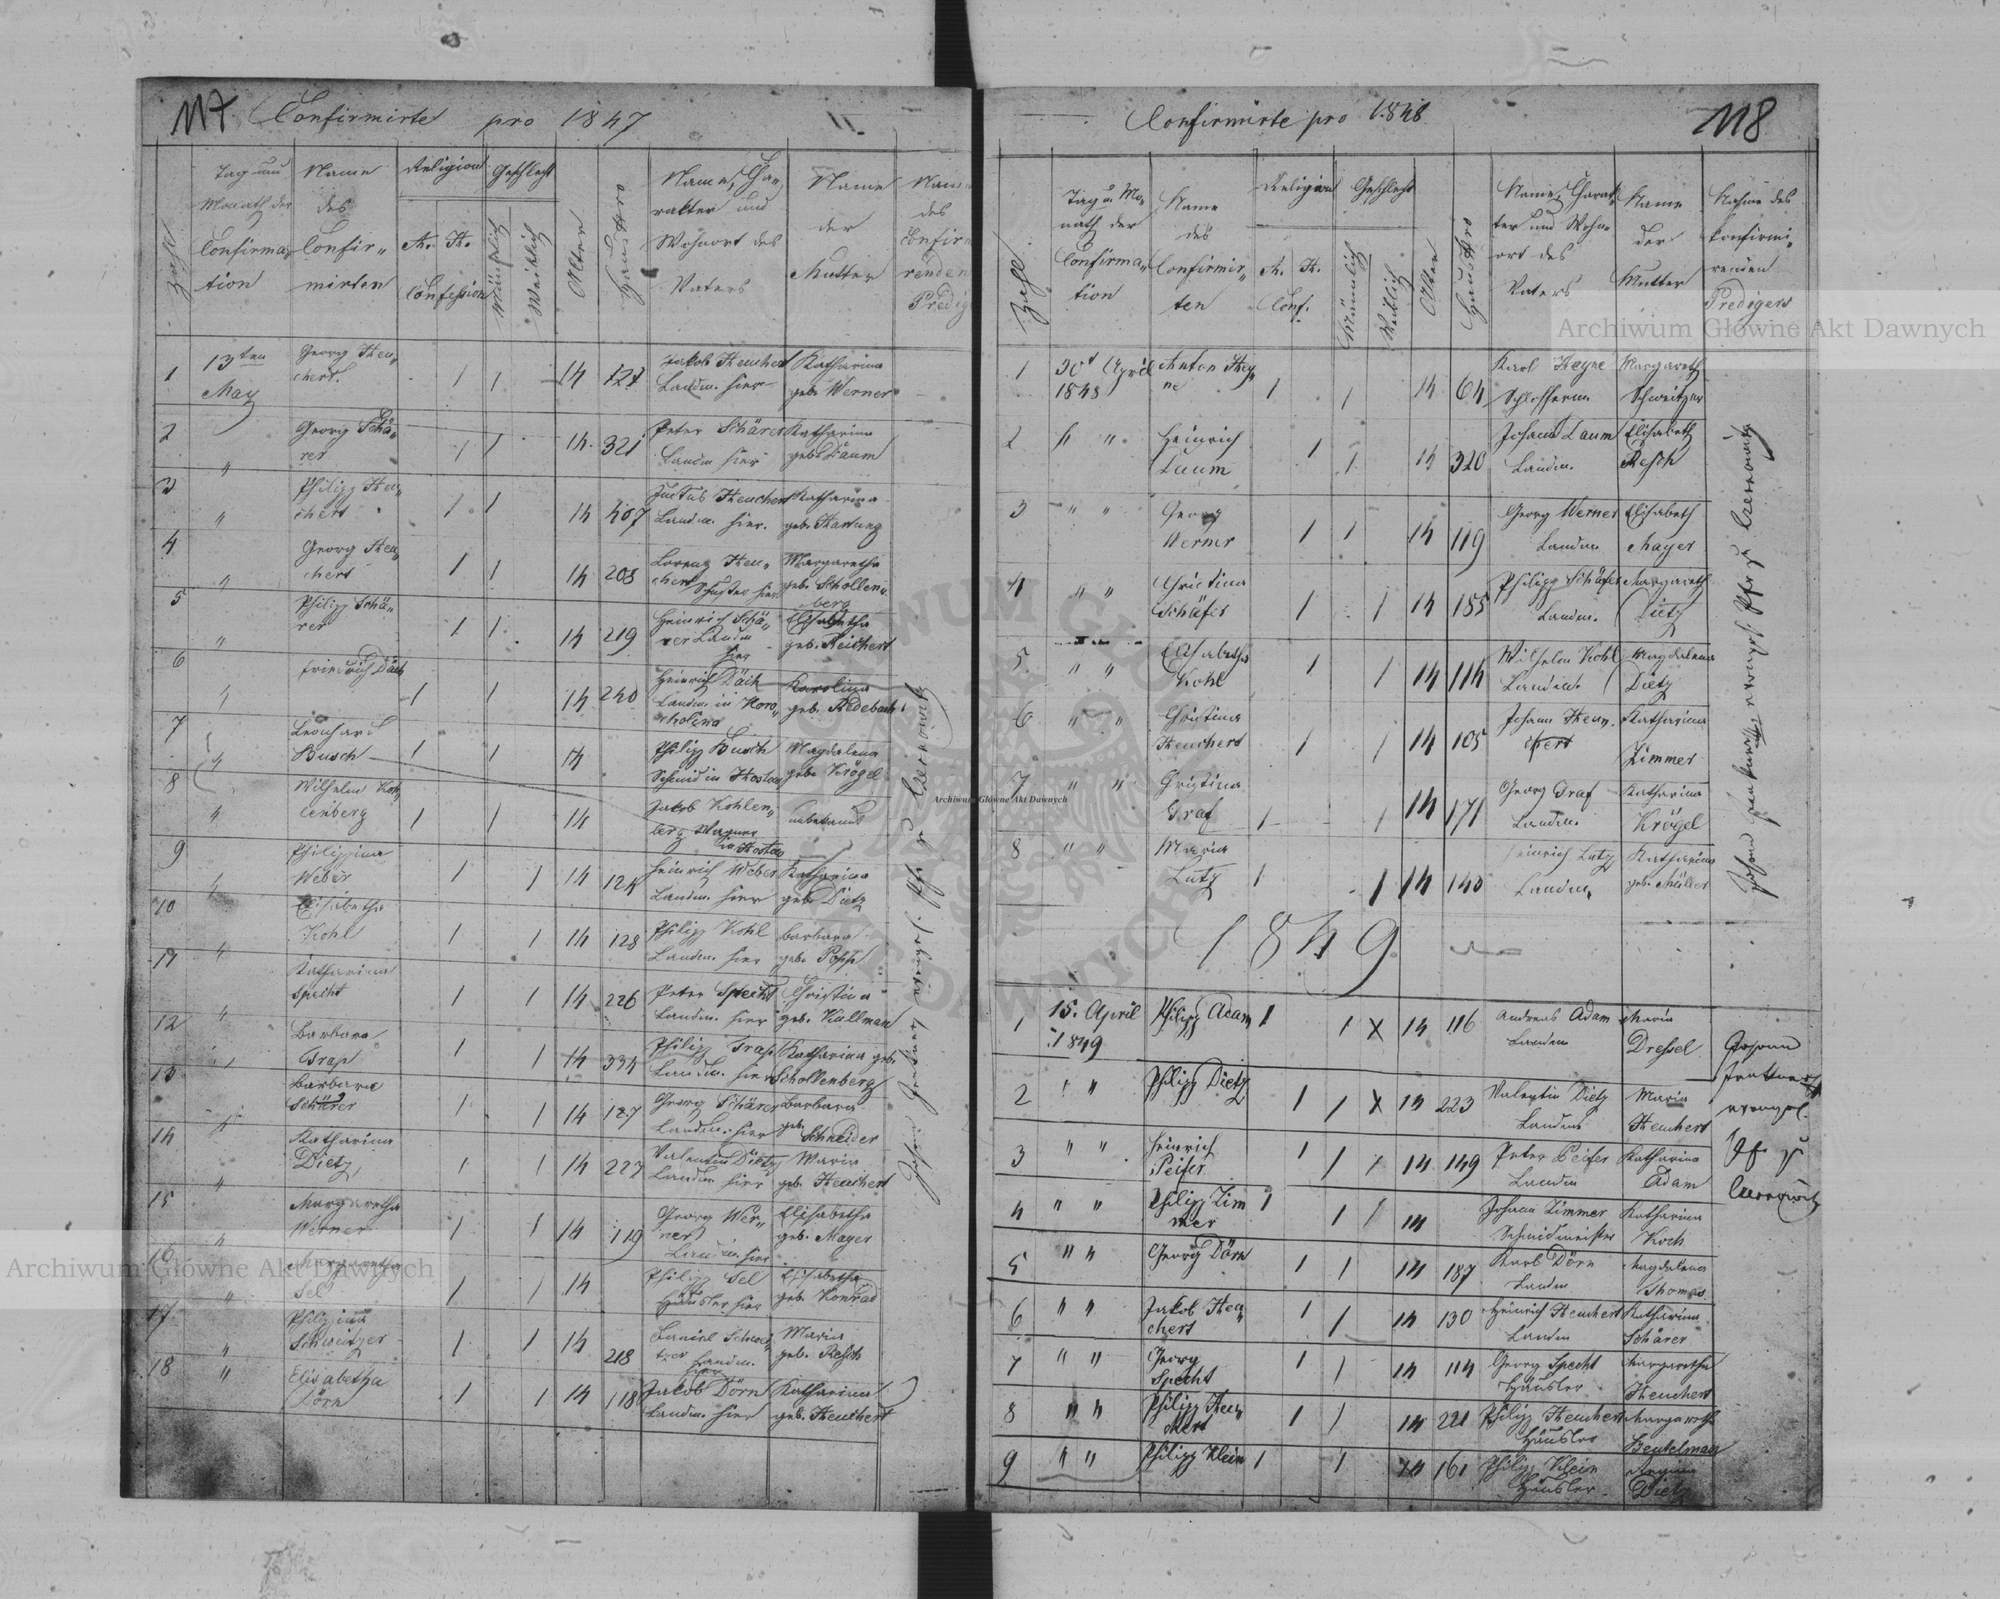 117. Confirmirte pro 1847
Zahl
Tag und
Monath der
Confirma„
tion
Name
des
Confir„
mirten
Religion
A. H.
Confession
Geschlecht
Männlich
Weiblich
Alter
Haus Nro
Name, Ca„
rakter und
Wohnort des
Vaters
Name
der
Mutter
des
Confir
renden
Predig
1 13ten May Georg Heu„ chert. 1 1 14 127 Jakob Heuchert Landm. hier Katharina geb. Werner
2 " Georg Schä„ rer 1 1 14 321 Peter Schärer Landm hier Katharina geb. Daum
3 " Philipp Heu„ chert 1 1 14 407 Justus Heuchert Landm. hier. Katharina geb. Hartung
4 " Georg Heu„ chert 1 1 14 208 Lorenz Heu„ chert Schuster hier Margaretha geb. Schollen„ berg
5 " Philipp Schä„ rer 1 1 14 219 Heinrich Schä„ rer Landm hier Elisabetha geb. Reichert
6 " Friedrich Däch 1 1 14 240 Heinrich Däch Landm. in Karolina geb.
7 " Leonhard Busch 1 1 14 Philipp Busch Schmid in Magdalena geb. Krögel
8 " Wilhelm Koh„ lenberg 1 1 14 Jakob Kohlen„ berg Wagner in unbekannt
9 " Philippina Weber 1 1 14 124 Heinrich Weber Landm. hier Katharina geb. Dietz
10 " Elisabetha Kohl 1 1 14 128 Philipp Kohl Landm. hier Barbara geb. Popp
11 " Katharina Specht 1 1 14 226 Peter Specht Landm. hier Christina geb. Kullman
12 " Barbara Trap 1 1 14 334 Philipp Trap Landm. hier Katharina geb. Schollenberg
13 " Barbara Schärer 1 1 14 127 Georg Schärer Landm. hier Barbara geb. Schneider
14 " Katharina Dietz 1 1 14 227 Valentin Dietz Landm hier Maria geb. Heuchert
15 " Margaretha Werner 1 1 14 119 Georg Wer„ ner Landm. hier Elisabetha geb. Mayer
16 " Margaretha Sel 1 1 14 Philipp Sel Häusler hier Elisabetha geb. Konrad
17 " Philippina Schweitzer 1 1 14 218 Daniel Schwei„ tzer Landm. hier Maria geb. Resch
18 " Elisabetha Dörn 1 1 14 118 Jakob Dörn Landm. hier Katharina geb. Heuchert
Confirmirte pro 1848
118
Zahl
Tag u Mo„
nath der
Confirma„
tion
Name
des
Confirmir„
ten
Religion
A. H.
Conf.
Geschlecht
Männlich
Weiblich
Alter
Haus Nro
Name, Charak
ter und Wohn„
ort des
Vaters
Name
der
Mutter
Nahme des
konfirmi„
renden
Predigers
1 30t April 1848 Anton Hey„ ne 1 1 14 64 Karl Heyne Margareth Schweitzer
2 " " Heinrich Daum 1 1 14 320 Johann Daum Landm. Elisabeth Resch
3 " " Georg Werner 1 1 14 119 Georg Werner Landm Elisabeth Mayer
4 " " Christina Schäfer 1 1 14 185 Philipp Schäfer Landm. Margareth Dietz
5 " " Elisabetha Kohl 1 1 14 114 Wilhelm Kohl Landm. Magdalena Dietz
6 " " Christina Heuchert 1 1 14 105 Johann Heu„ chert Katharina Zimmer
7 " " Christina Graf 1 1 14 171 Georg Graf Landm. Katharina Krögel
8 " " Maria Lutz 1 1 14 140 Heinrich Lutz Landm. Katharina geb. Müller
1849
1 15. April 1849 Philipp Adam 1 1 x 14 116 Andreas Adam Landm Maria Dressel
2 " " Philipp Dietz 1 1 x 14 223 Valentin Dietz Landm Maria Heuchert
3 " " Heinrich Peifer 1 1 14 149 Peter Peifer Landm Katharina Adam
4 " " Philipp Zim mer 1 1 14 Johann Zimmer Schmidmeister Katharina Koch
5 " " Georg Dörn 1 1 14 187 Karl Dörn Landm Magdalena Thomas
6 " " Jakob Heu„ chert 1 1 14 130 Heinrich Heuchert Landm Katharina Schärer
7 " " Georg Specht 1 1 14 114 Georg Specht Häusler Margaretha Heuchert
8 " " Philipp Heu„ chert 1 1 14 221 Philipp Heuchert Häusler Margareth Beutelman
9 " " Philipp Klein 1 1 14 161 Philipp Klein Häusler Dietz
Johann
evangel.
Archiwum Główne Akt Dawnych
Archiwum Główne Akt Dawnych
Archiwum Główne Akt Dawnych